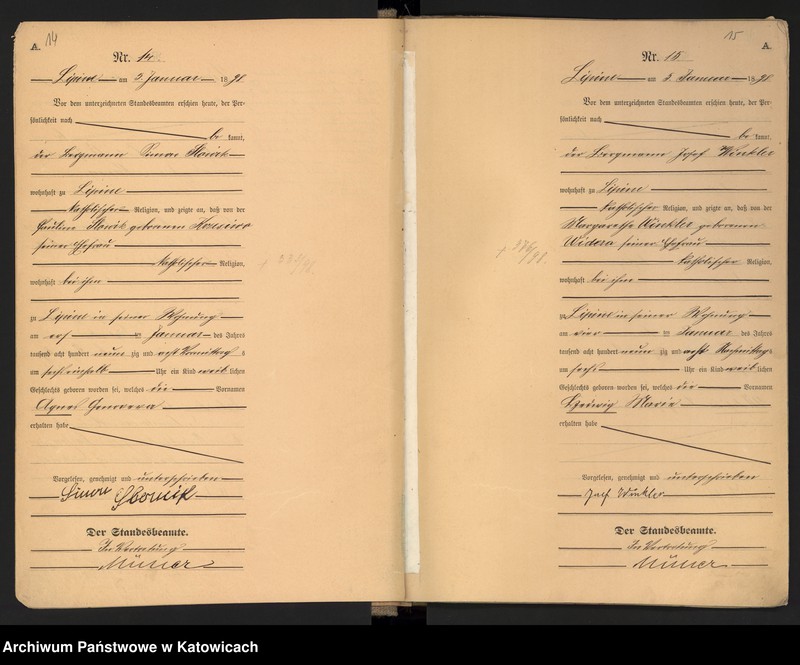 A. 14
Nr. 14.
Lipine am 5 Januar 1898
Vor dem unterzeichneten Standesbeamten erschien heute, der Per-
sönlichkeit nach
be kannt,
der Bergmann Simon Slowik
wohnhaft zu Lipine
katholischer Religion, und zeigte an, daß von der
Pauline Slowik geborenen
seiner Ehefrau
katholischer Religion,
wohnhaft bei ihm
zu Lipine in seiner Wohnung
am Januar des Jahres
tausend acht hundert neun zig und acht Vormittag s
um sechs einhalb Uhr ein Kind weib lichen
Geschlechts geboren worden sei, welches die Vornamen
Agnes Genoveva
erhalten habe
Vorgelesen, genehmigt und unterschrieben
Simon Slowik
Der Standesbeamte.
In Vertretung
15 A.
Nr. 15
Lipine am 5. Januar 1898
Vor dem unterzeichneten Standesbeamten erschien heute, der Per-
sönlichkeit nach
be kannt,
der Bergmann Josef Winkler
wohnhaft zu Lipine
katholischer Religion, und zeigte an, daß von der
Margarethe Winkler geborenen
Widera seiner Ehefrau
katholischer Religion,
wohnhaft bei ihm
zu Lipine in seiner Wohnung
am vier ten Januar des Jahres
tausend acht hundert neun zig und acht Nachmittags
um sechs Uhr ein Kind weib lichen
Geschlechts geboren worden sei, welches die Vornamen
Hedwig Marie
erhalten habe
Vorgelesen, genehmigt und unterschrieben
Josef Winkler
Der Standesbeamte.
In Vertretung
Archiwum Państwowe w Katowicach